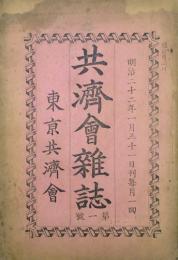 明治二十二年一月三十一日刊毎月一回
共濟會雜誌
第一號
東京共濟會